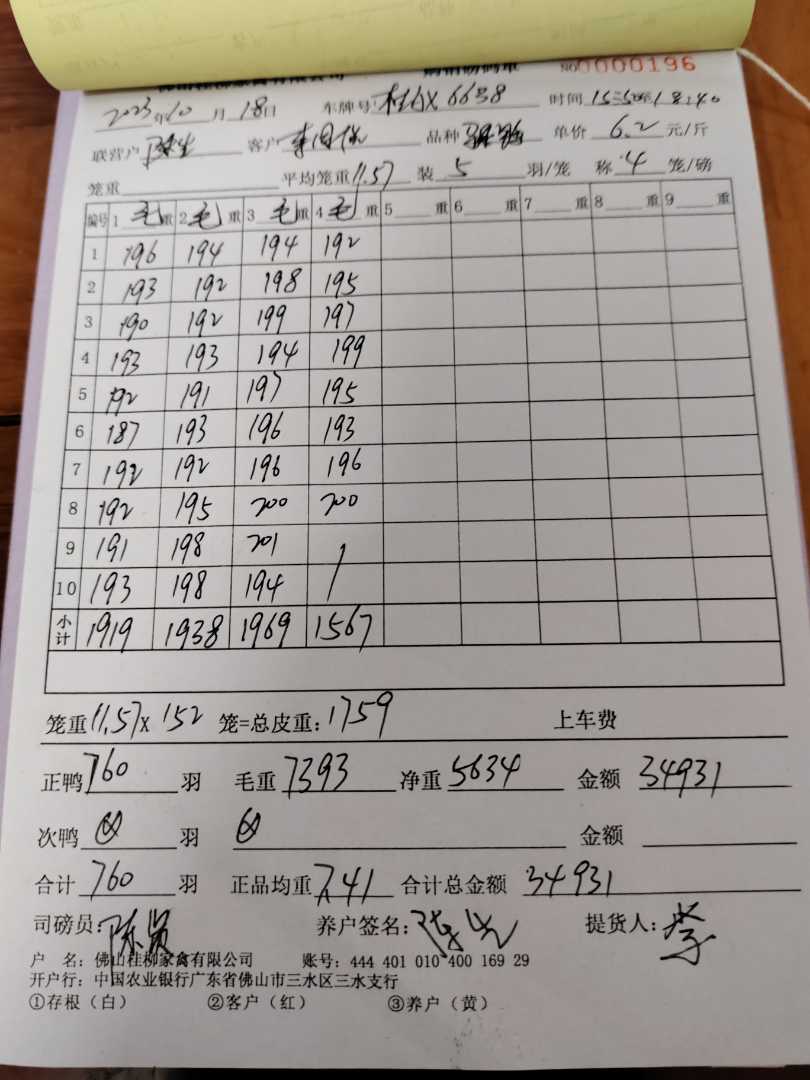 №0000196
2023年10月18日 车牌号: 时间
联营户 客户 品种 单价 6.2 元/斤
笼重 平均笼重 11.57 装 5 羽/笼 称 4 笼/磅
编号 1 毛重 2 毛重 3 毛重 4 毛重 5 重 6 重 7 重 8 重 9 重
1 196 194 194 192
2 193 192 198 195
3 190 192 199 197
4 193 193 194 199
5 192 191 197 195
6 187 193 196 193
7 192 192 196 196
8 192 195 200 200
9 191 198 201 /
10 193 198 194
小计 1919 1938 1969 1567
笼重 11.57 x 152 笼=总皮重: 1759 上车费
正鸭 760 羽 毛重 7393 净重 5634 金额 34931
次鸭 羽 金额
合计 760 羽 正品均重 7.41 合计总金额 34931
司磅员: 养户签名: 提货人: 李
户 名: 佛山桂柳家禽有限公司 账号: 444 401 010 400 169 29
开户行: 中国农业银行广东省佛山市三水区三水支行
①存根（白） ②客户（红） ③养户（黄）